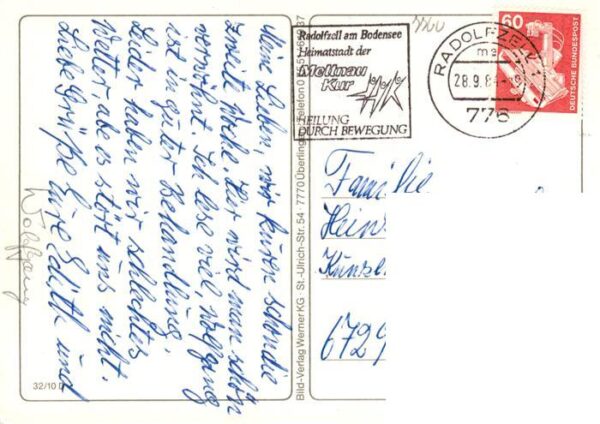 Meine Lieben, wir kuren schon die
zweite Woche. Hier wird man schön
verwöhnt. Ich lese viel, Wolfgang
ist in guter Behandlung.
Leider haben wir schlechtes
Wetter, aber es stört uns nicht.
Liebe Grüße Eure Edith und
Wolfgang
32/10
Bild-Verlag Werner KG · St.-Ulrich-Str. 54 · 7770 Überlingen · Telefon
Radolfzell am Bodensee
Heimatstadt der
Mettnau
Kur
HEILUNG
DURCH BEWEGUNG
RADOLFZELL 1
ma
28.9.84
776
60
DEUTSCHE BUNDESPOST
Familie
Hein
Künzel
6729